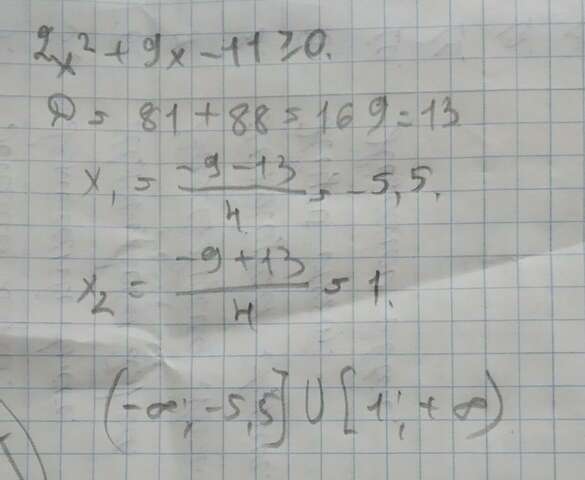 2x² + 9x - 11 ≥ 0.
D = 81 + 88 = 169 = 13
x₁ = (-9 - 13)/4 = -5,5.
x₂ = (-9 + 13)/4 = 1.
(-∞; -5,5] ∪ [1; +∞)